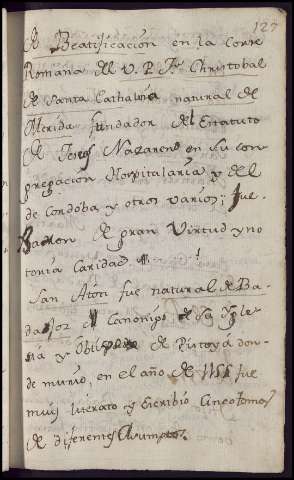 127
de Beatificacion en la Corte
Romana del V. P. Fr. Christobal
de Santa Cathalina natural de
Merida fundador del Estatuto
de Jesus Nazareno en su con
gregacion Hospitalaria y del
de Cordoba y otros varios; fue
Baron de gran Virtud y no
toria Caridad
San Atón fue natural de Ba
dajoz Canonigo de su Ygle
sia y Obispo de Pistoya don-
de murió, en el año de fue
muy literato y Escribió Cinco tomos
de diferentes Asumptos.